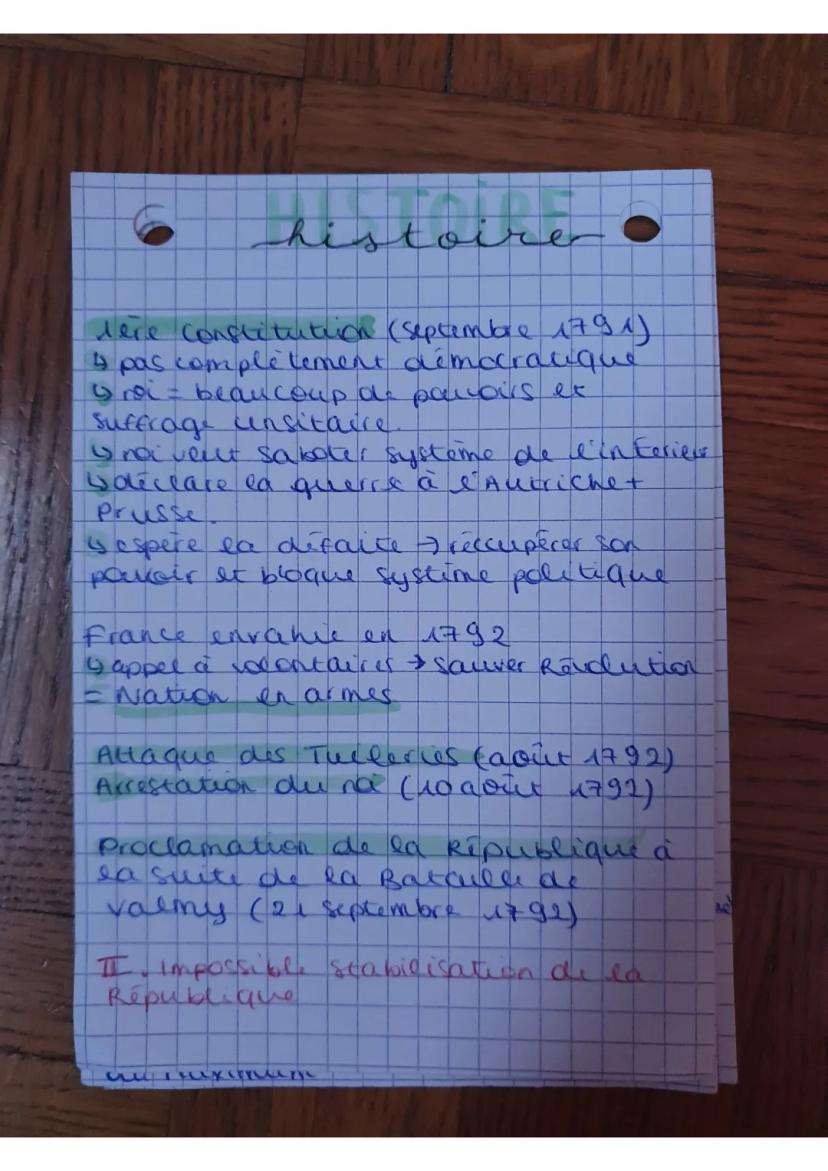 HISTOIRE
histoire
1ère constitution (septembre 1791)
↳ pas complètement démocratique
↳ roi = beaucoup de pouvoirs et
suffrage censitaire.
↳ roi veut saboter système de l'interieur
↳ déclare la guerre à l'Autriche +
Prusse.
↳ espère la défaite → réccupérer son
pouvoir et bloque système politique
France envahie en 1792
↳ appel à volontaires → sauver Révolution
= Nation en armes
Attaque des Tuileries (août 1792)
Arrestation du roi (10 août 1792)
Proclamation de la République à
la suite de la Bataille de
Valmy (21 septembre 1792)
II. Impossible stabilisation de la
République